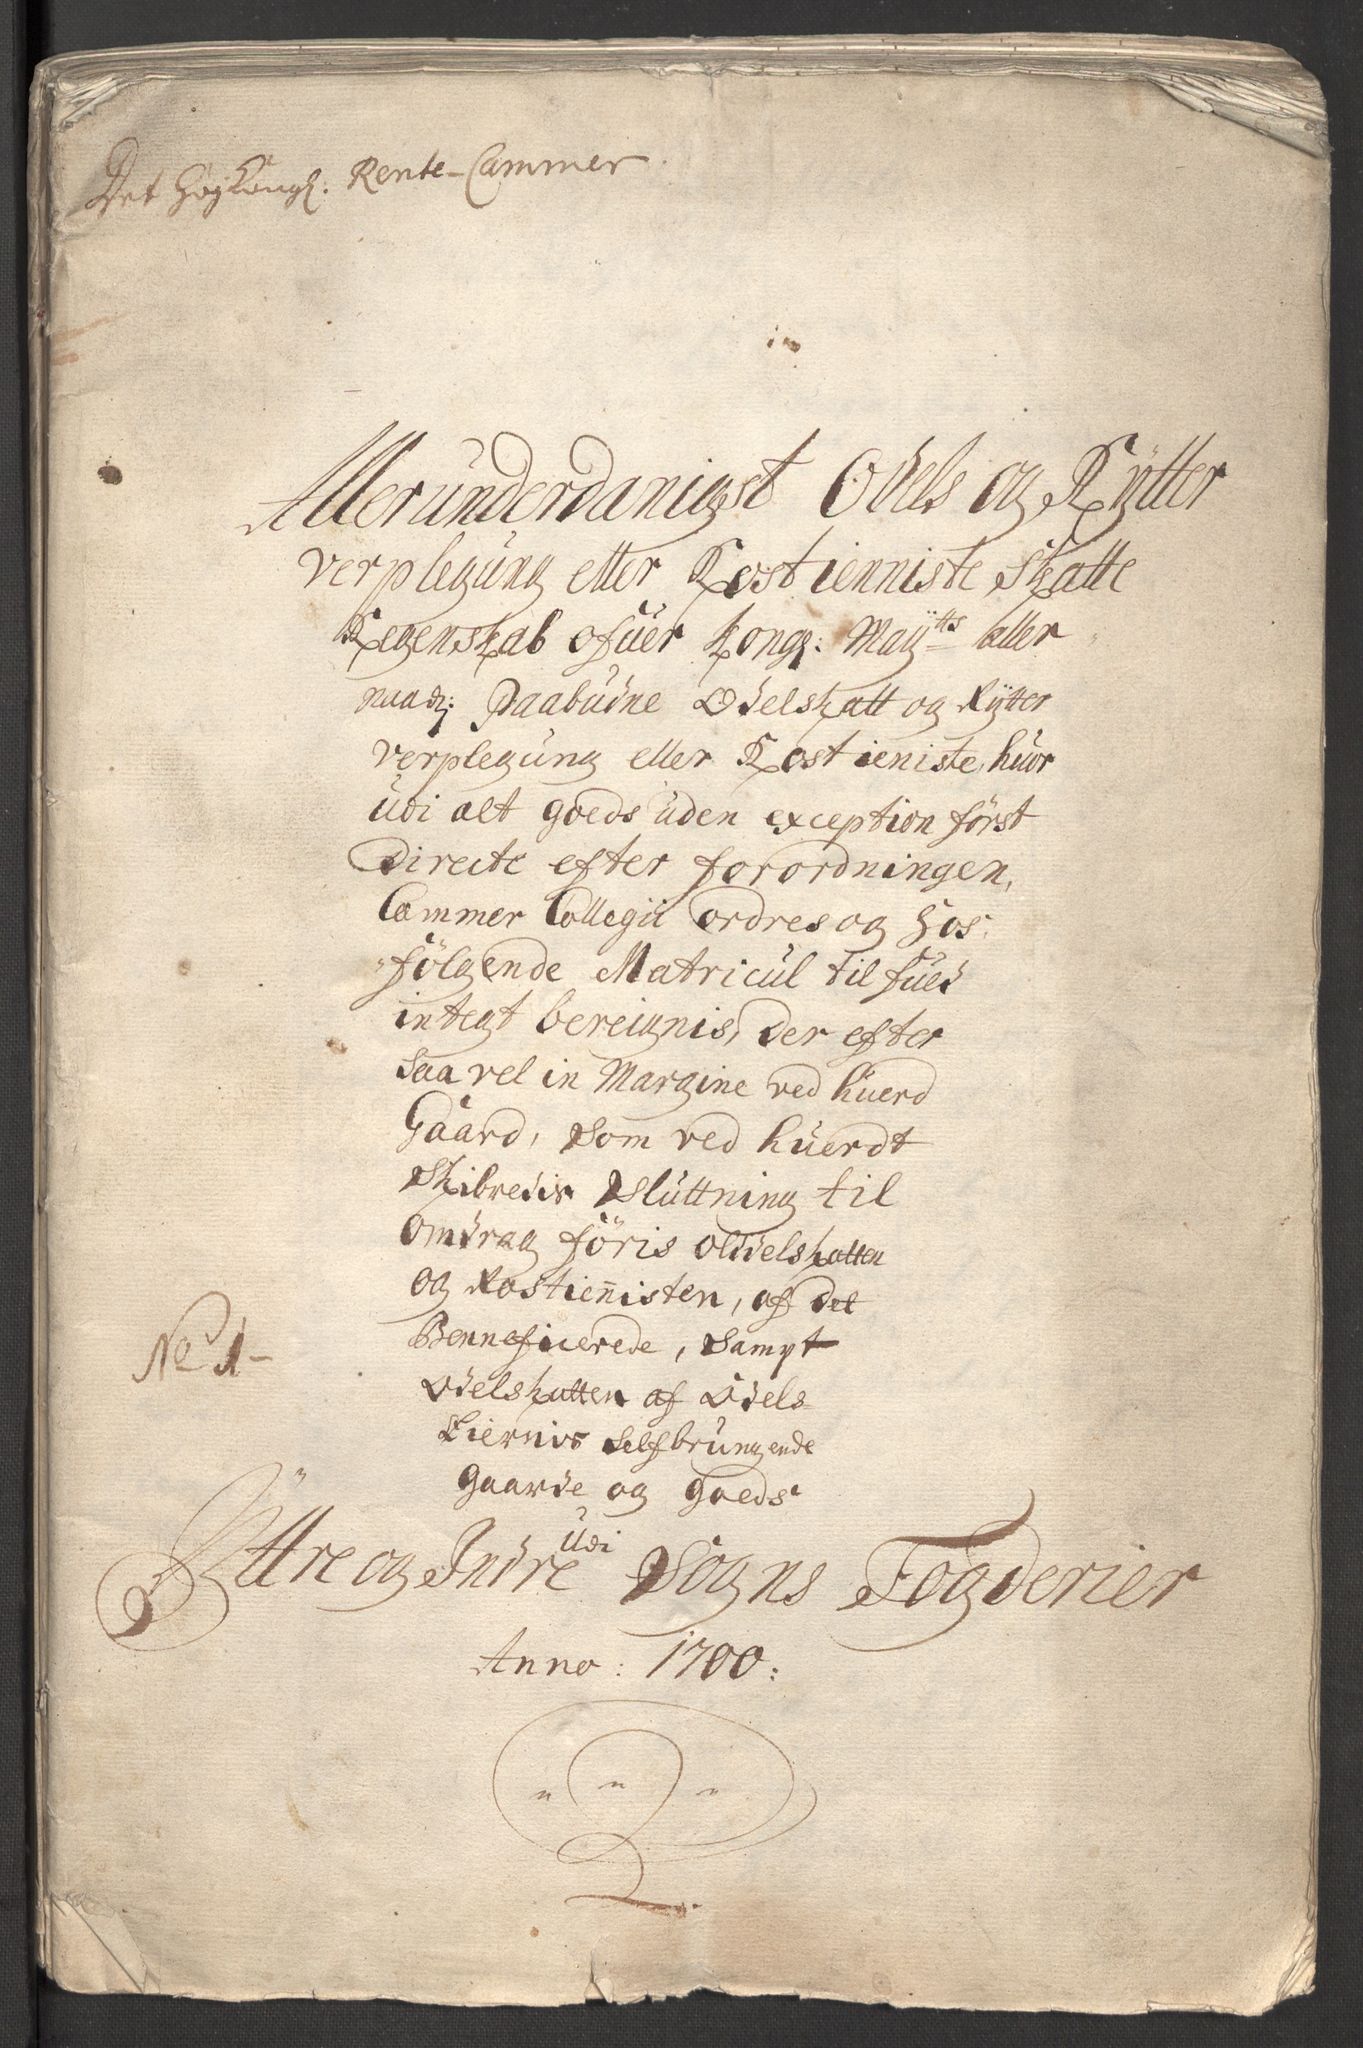 Det HøyKongl: Rente-Cammer.
Allerunderdanigst Odels og Rÿtter
verplegung eller Rostienniste Skatte
Regenskab ofuer Kongl: Maÿtts aller
naadl: Paabudne Odelskatt og Rÿtter
verplegung eller Rostieniste, huor
udi alt goeds uden exception först
Directe efter forordningen,
Cammer Collegii ordres og Hos
fölgende Matricul til fuld
integt bereignis, der efter
saa vel in Margine ved huerd
Gaard, som ved huerdt
Skibredis Sluttning til
omdrag föris oddelskatten
og Rostieñisten, af det
Benneficerede, sampt
Odelskatten af Odels
Eiernis selfbrugende
Gaarde og Goeds
Udi
No 1-
Ÿttre og Indre Sogns Fogderier
Anno: 1700: